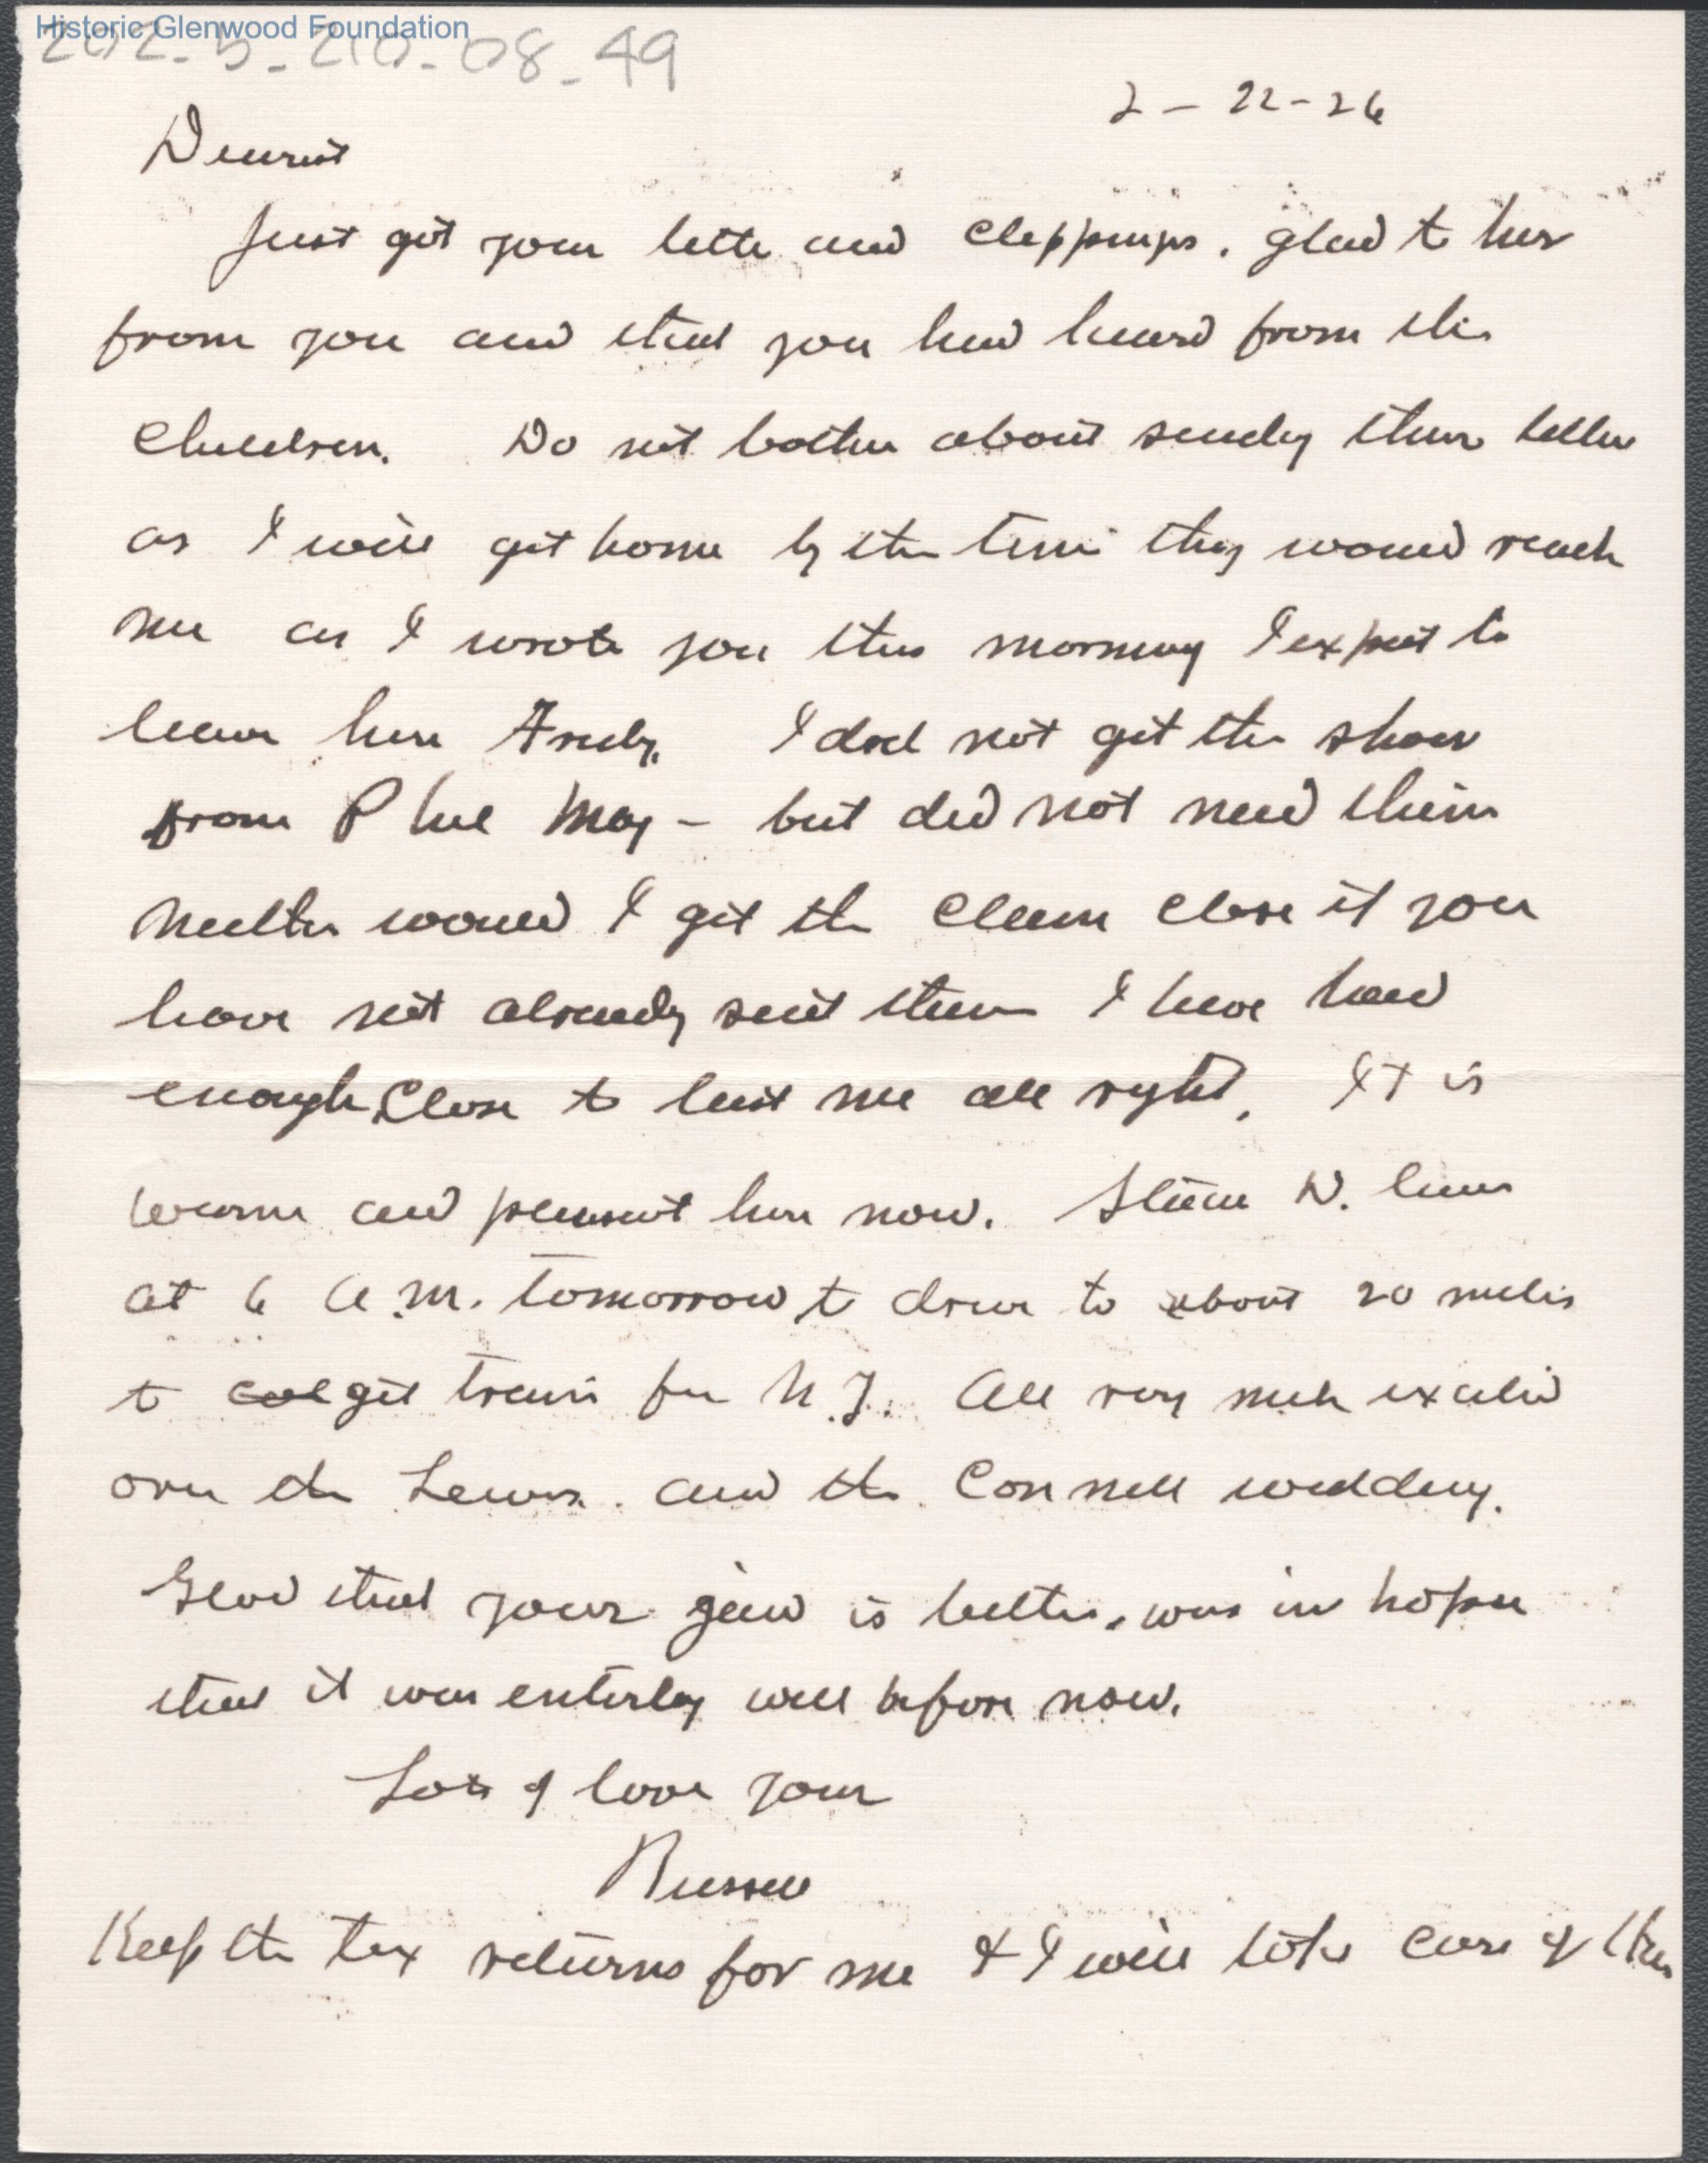 Historic Glenwood Foundation
202-5-210-08-49
2-22-26
Dearest
Just got your letter and clippings. glad to hear
from you and that you had heard from the
Children. Do not bother about sending them letters
as I will get home by the time they would reach
me as I wrote you this morning I expect to
leave here Friday. I did not get the
from Phil May - but did not need them
Neither would I get the clean close if you
have not already sent them I have had
enough close to last me all right. It is
warm and pleasant here now. W. leaves
at 6 a.m. tomorrow to drive to about 20 miles
to get train for N.Y. All very much excited
over the Lewis and the Connell wedding.
Glad that your jaw is better, was in hopes
that it was entirely well before now.
Lots of love your
Russell
Keep the tax returns for me & I will take care of them